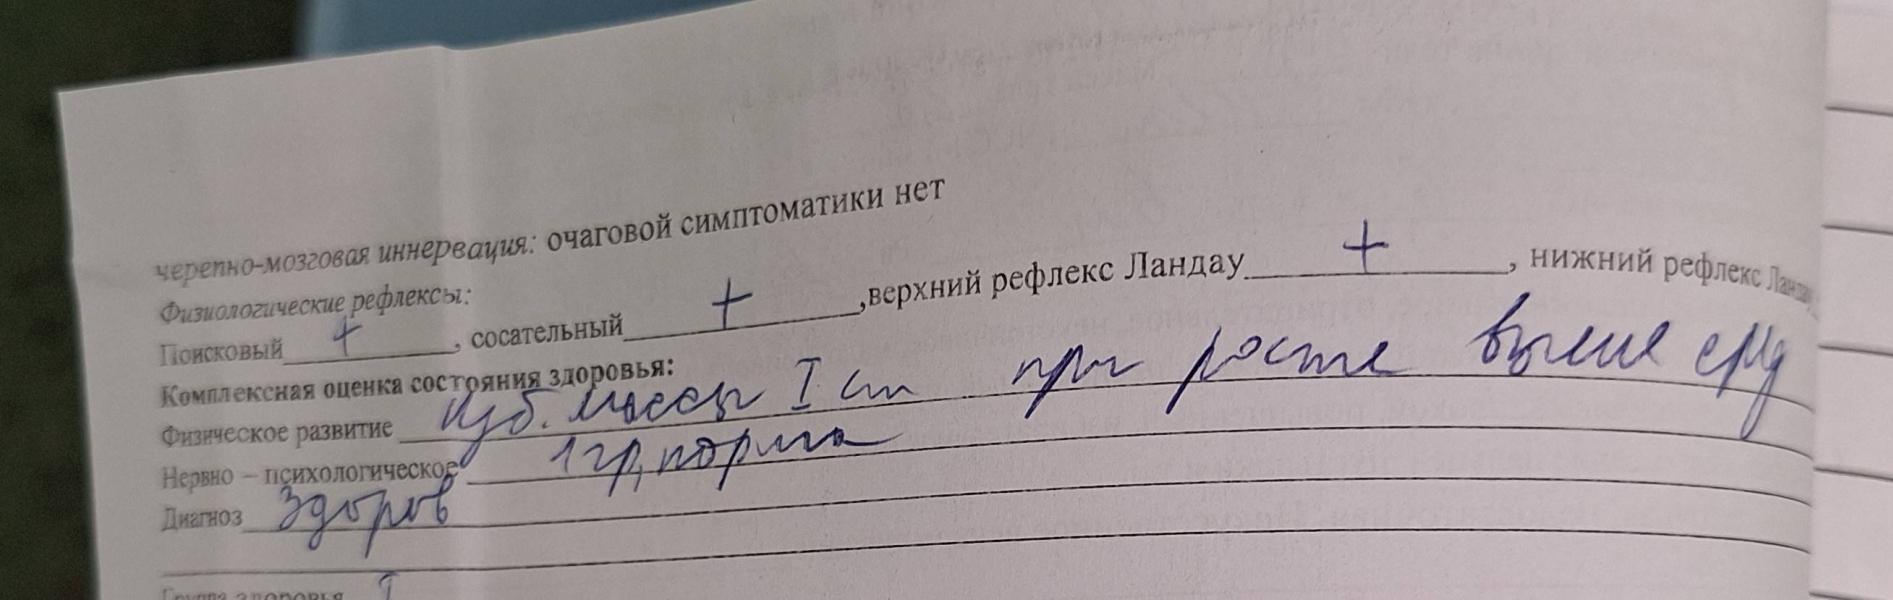 черепно-мозговая иннервация: очаговой симптоматики нет
Физиологические рефлексы:
Поисковый + , сосательный + ,верхний рефлекс Ландау + , нижний рефлекс Ландау
Комплексная оценка состояния здоровья:
Физическое развитие изб. массы I ст при росте выше сред
Нервно – психологическое 1 гр, норма
Диагноз Здоров
Группа здоровья I